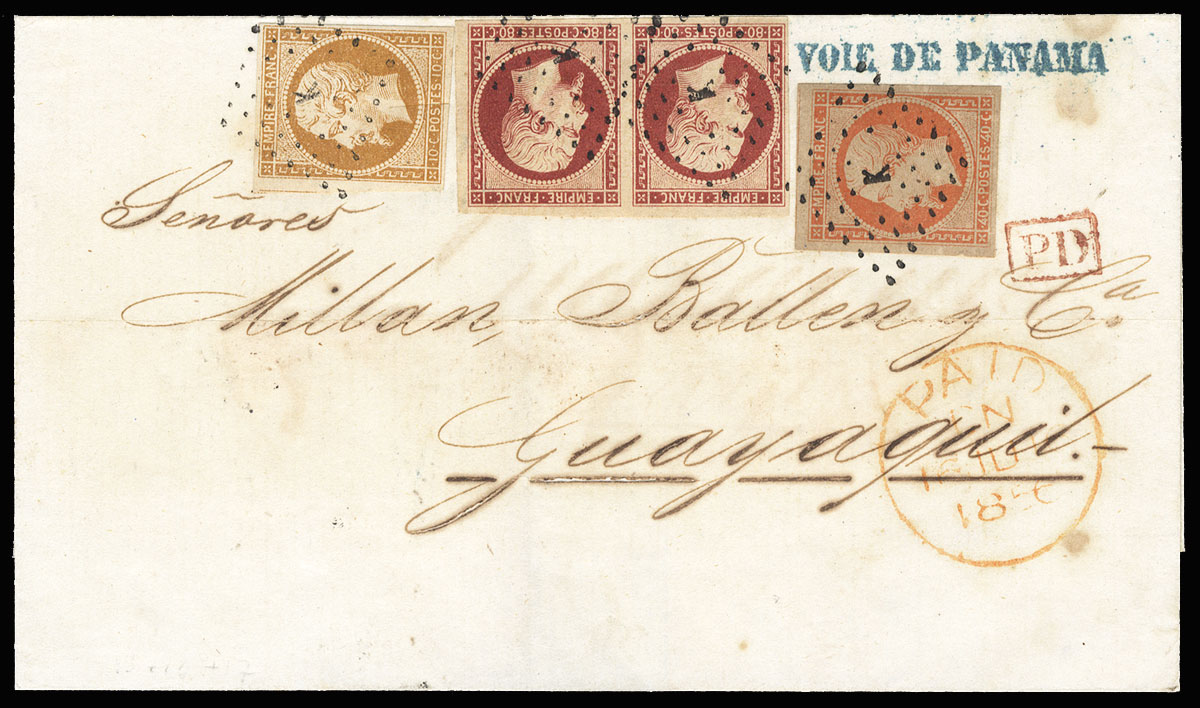 EMPIRE · FRANC ·
· 10 · C · POSTES · 10 · C ·
· 80 · C · POSTES · 80 · C ·
EMPIRE · FRANC ·
· 80 · C · POSTES · 80 · C ·
EMPIRE · FRANC ·
VOIE DE PANAMA
EMPIRE · FRANC ·
40 · C · POSTES · 40 · C
K
K
K
K
Señores
PD
Millan, Ballen y Ca.
PAID
Guayaquil.